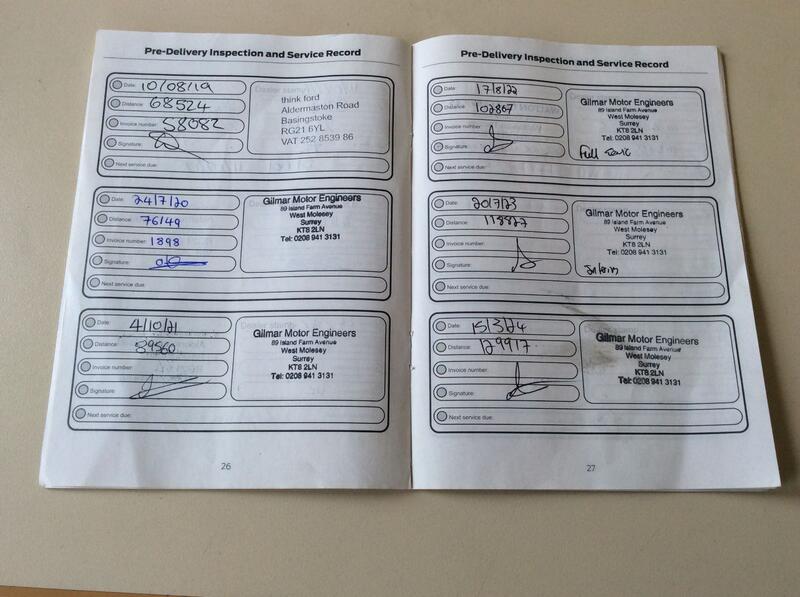 Pre-Delivery Inspection and Service Record
Date: 10/08/19
Distance: 68524
Invoice number: 58082
Signature:
Next service due:
think ford
Aldermaston Road
Basingstoke
RG21 6YL
VAT 252 8539 86
Date: 24/7/20
Distance: 76149
Invoice number: 1898
Signature:
Next service due:
Gilmar Motor Engineers
89 Island Farm Avenue
West Molesey
Surrey
KT8 2LN
Tel: 0208 941 3131
Date: 4/10/21
Distance: 89560
Invoice number:
Signature:
Next service due:
Gilmar Motor Engineers
89 Island Farm Avenue
West Molesey
Surrey
KT8 2LN
Tel: 0208 941 3131
26
Pre-Delivery Inspection and Service Record
Date: 17/8/22
Distance: 102867
Invoice number:
Signature:
Next service due:
Gilmar Motor Engineers
89 Island Farm Avenue
West Molesey
Surrey
KT8 2LN
Tel: 0208 941 3131
Full
Date: 20/7/23
Distance: 118827
Invoice number:
Signature:
Next service due:
Gilmar Motor Engineers
89 Island Farm Avenue
West Molesey
Surrey
KT8 2LN
Tel: 0208 941 3131
Date: 15/3/24
Distance: 129917
Invoice number:
Signature:
Next service due:
Gilmar Motor Engineers
89 Island Farm Avenue
West Molesey
Surrey
KT8 2LN
Tel: 0208 941 3131
27